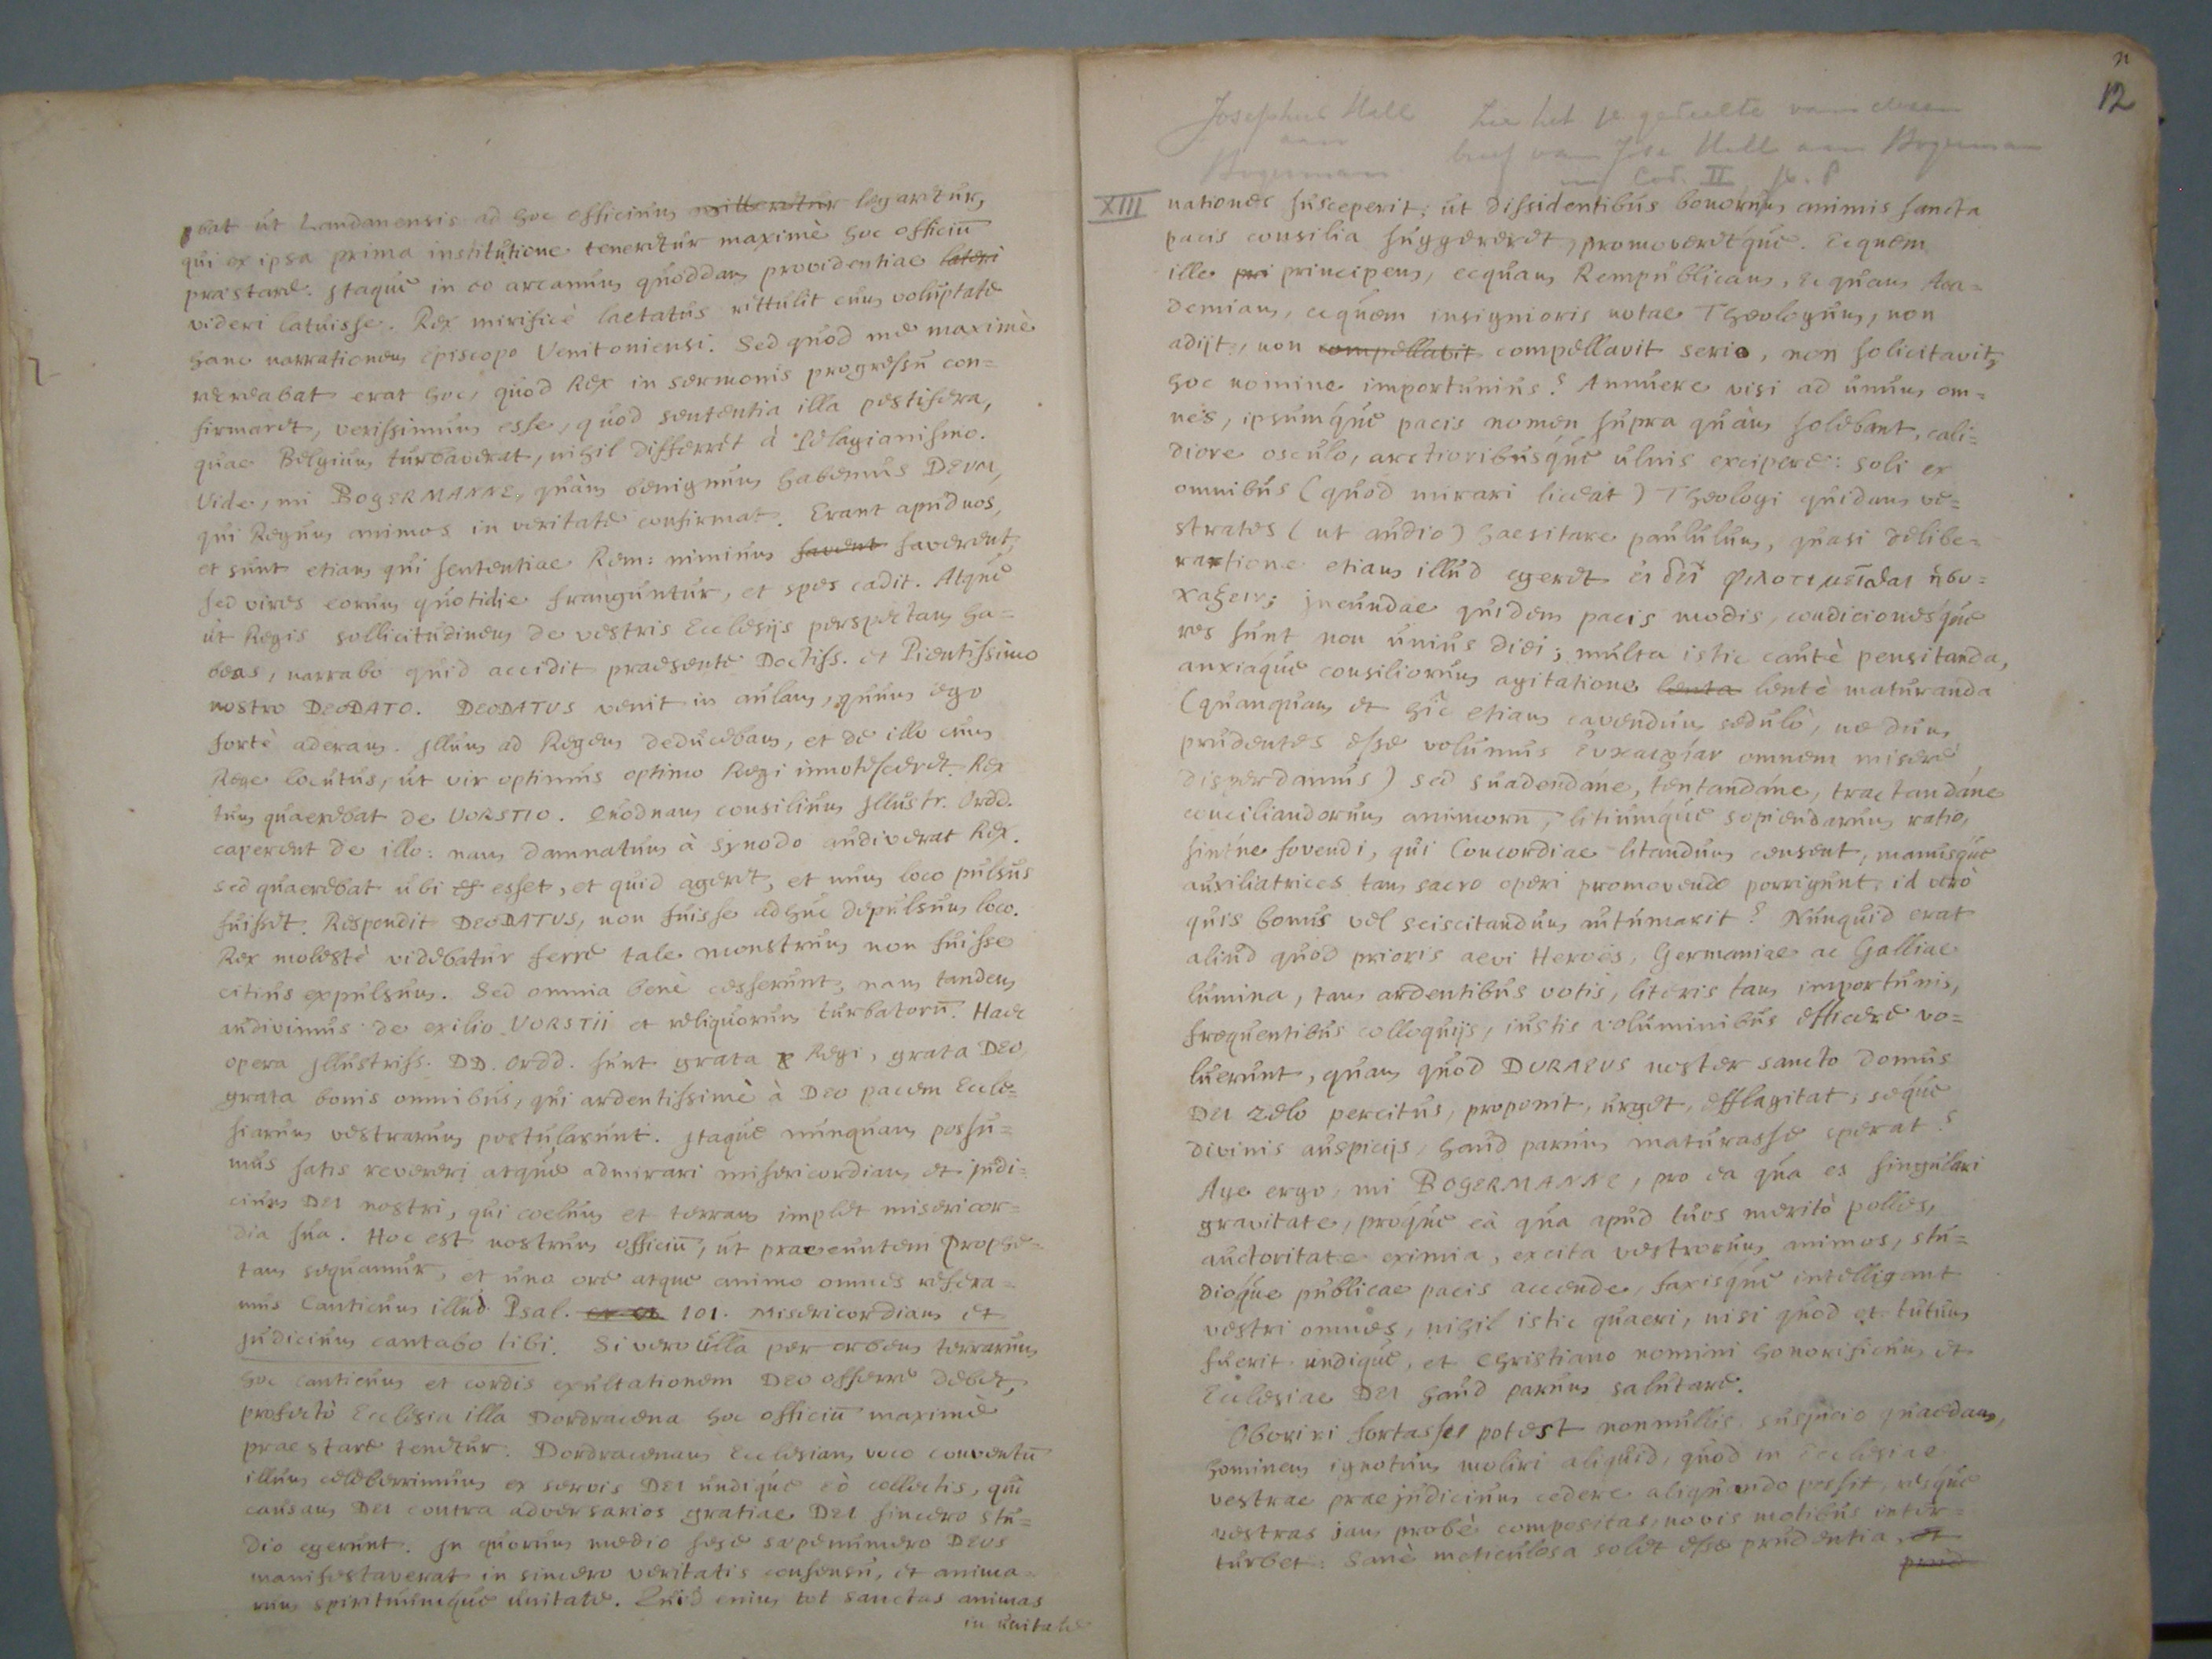 bat ut Landanensis ad hoc officium mitteretur legaretur,
qui ex ipsa prima institutione teneretur maximè hoc officiū
praestare. Itaque in eo arcanum quoddam providentiae lateri
videri latuisse. Rex mirificè laetatus rettulit cum voluptate
hanc narrationem Episcopo Venitoniensi. Sed quod me maximè
recreabat erat hoc, quod Rex in sermonis progressu con=
firmaret, verissimum esse, quod sententia illa pestifera,
quae Belgium turbaverat, nihil differret à Pelagianismo.
Vide, mi BOGERMANNE, quàm benignum habemus DEUM,
qui Regum animos in veritate confirmat. Erant apud nos,
et sunt etiam qui sententiae Rem: nimium favent faverent,
sed vires eorum quotidie franguntur, et spes cadit. Atque
ut Regis sollicitudinem de vestris Ecclesijs perspectam ha=
beas, narrabo quid accidit praesente Doctiss. et Pientissimo
nostro DEODATO. DEODATUS venit in aulam, quum ego
fortè aderam. Illum ad Regem deducebam, et de illo cum
Rege locutus, ut vir optimus optimo Regi innotesceret. Rex
tum quaerebat de VORSTIO. Quodnam consilium Illustr. Ordd.
caperent de illo: nam damnatum à Synodo audiverat Rex.
sed quaerebat ubi esset, et quid ageret, et num loco pulsus
fuisset. Respondit DEODATUS, non fuisse adhuc depulsum loco.
Rex molestè videbatur ferre tale monstrum non fuisse
citius expulsum. Sed omnia benè cesserunt, nam tandem
audivimus de exilio VORSTII et reliquorum turbatorū. Haec
opera Illustriss. DD. Ordd. sunt grata Regi, grata DEO,
grata bonis omnibus, qui ardentissimè à DEO pacem Eccle=
siarum vestrarum postularunt. Itaque nunquam possu=
mus satis revereri atque admirari misericordiam et judi=
cium DEI nostri, qui coelum et terram implet misericor=
dia sua. Hoc est nostrum officiū, ut praeeuntem Prophe=
tam sequamur, et uno ore atque animo omnes refera=
mus Canticum illud Psal. 101. Misericordiam et
judicium cantabo tibi. Si vero ulla per orbem terrarum
hoc canticum et cordis exultationem DEO offerre debet,
profectò Ecclesia illa Dordracena hoc officiū maximè
praestare tenetur. Dordracenam Ecclesiam voco conventū
illum celeberrimum ex servis DEI undique eò collectis, qui
causam DEI contra adversarios gratiae DEI sincero stu=
dio egerunt. In quorum medio sese saepenumero DEUS
manifestaverat in sincero veritatis consensu, et anima=
rum spirituumque unitate. Quid enim tot sanctas animas
in unitate
12
Josephus Hall zie het 1e gedeelte van dezen
aan brief van Jose Hall aan Bogerman
Bogerman in Cod. II
XIII nationes susceperit; ut dissidentibus bonorum animis sancta
pacis consilia suggereret, promoveretque. Ecquem
ille pri principem, ecquam Rempublicam, ecquam Aca=
demiam, ecquem insignioris notae Theologum, non
adijt, non compellavit compellavit serio, non solicitavit
hoc nomine importunius? Annuere visi ad unum om=
nes, ipsumque pacis nomen supra quàm solebant, cali=
diore osculo, arctioribusque ulnis excipere: soli ex
omnibus (quod mirari liceat) Theologi quidam ve=
strates (ut audio) haesitare paululum, quasi delibe=
ratione etiam illud egeret εἰ δεῖ φιλοτιμεῖσθαι ἡσυ=
χάζειν; jucundae quidem pacis modis, condicionesque
res sunt non unius diei; multa istic cautè pensitanda,
anxiaque consiliorum agitatione lenta lentè maturanda
(quanquam et hîc etiam cavendum sedulò, ne dum
prudentes esse volumus εὐκαιρίαν omnem miserè
disperdamus) sed suadendáne, tentandáne, tractandáne
conciliandorum animorū, litiumque sopiendarum ratio,
sintne fovendi, qui Concordiae litandum censent, manusque
auxiliatrices tam sacro operi promovendo porrigunt, id verò
quis bonus vel sciscitandum autumarit? Nunquid erat
aliud quod prioris aevi Heroës, Germaniae ac Galliae
lumina, tam ardentibus votis, literis tam importunis,
frequentibus colloquijs, iustis voluminibus efficere vo=
luerunt, quam quod DURAEUS noster sancto domus
DEI zelo percitus, proponit, urget, efflagitat, seque
divinis auspicijs, haud parum maturasse sperat?
Age ergo, mi BOGERMANNE, pro ea qua es singulari
gravitate, proque eâ qua apud tuos meritò polles,
auctoritate eximia, excita vestrorum animos, stu=
dioque publicae pacis accende, faxisque intelligant
vestri omnes, nihil istic quaeri, nisi quod et tutum
fuerit undique, et Christiano nomini honorificum et
Ecclesiae DEI haud parum salutare.
Oboriri fortasse potest nonnullis suspicio quaedam,
hominem ignotum moliri aliquid, quod in Ecclesiae
vestrae praejudicium cedere aliquando possit, resque
vestras jam probè compositas, novis motibus inter=
turbet: Sanè meticulosa solet esse prudentia, et